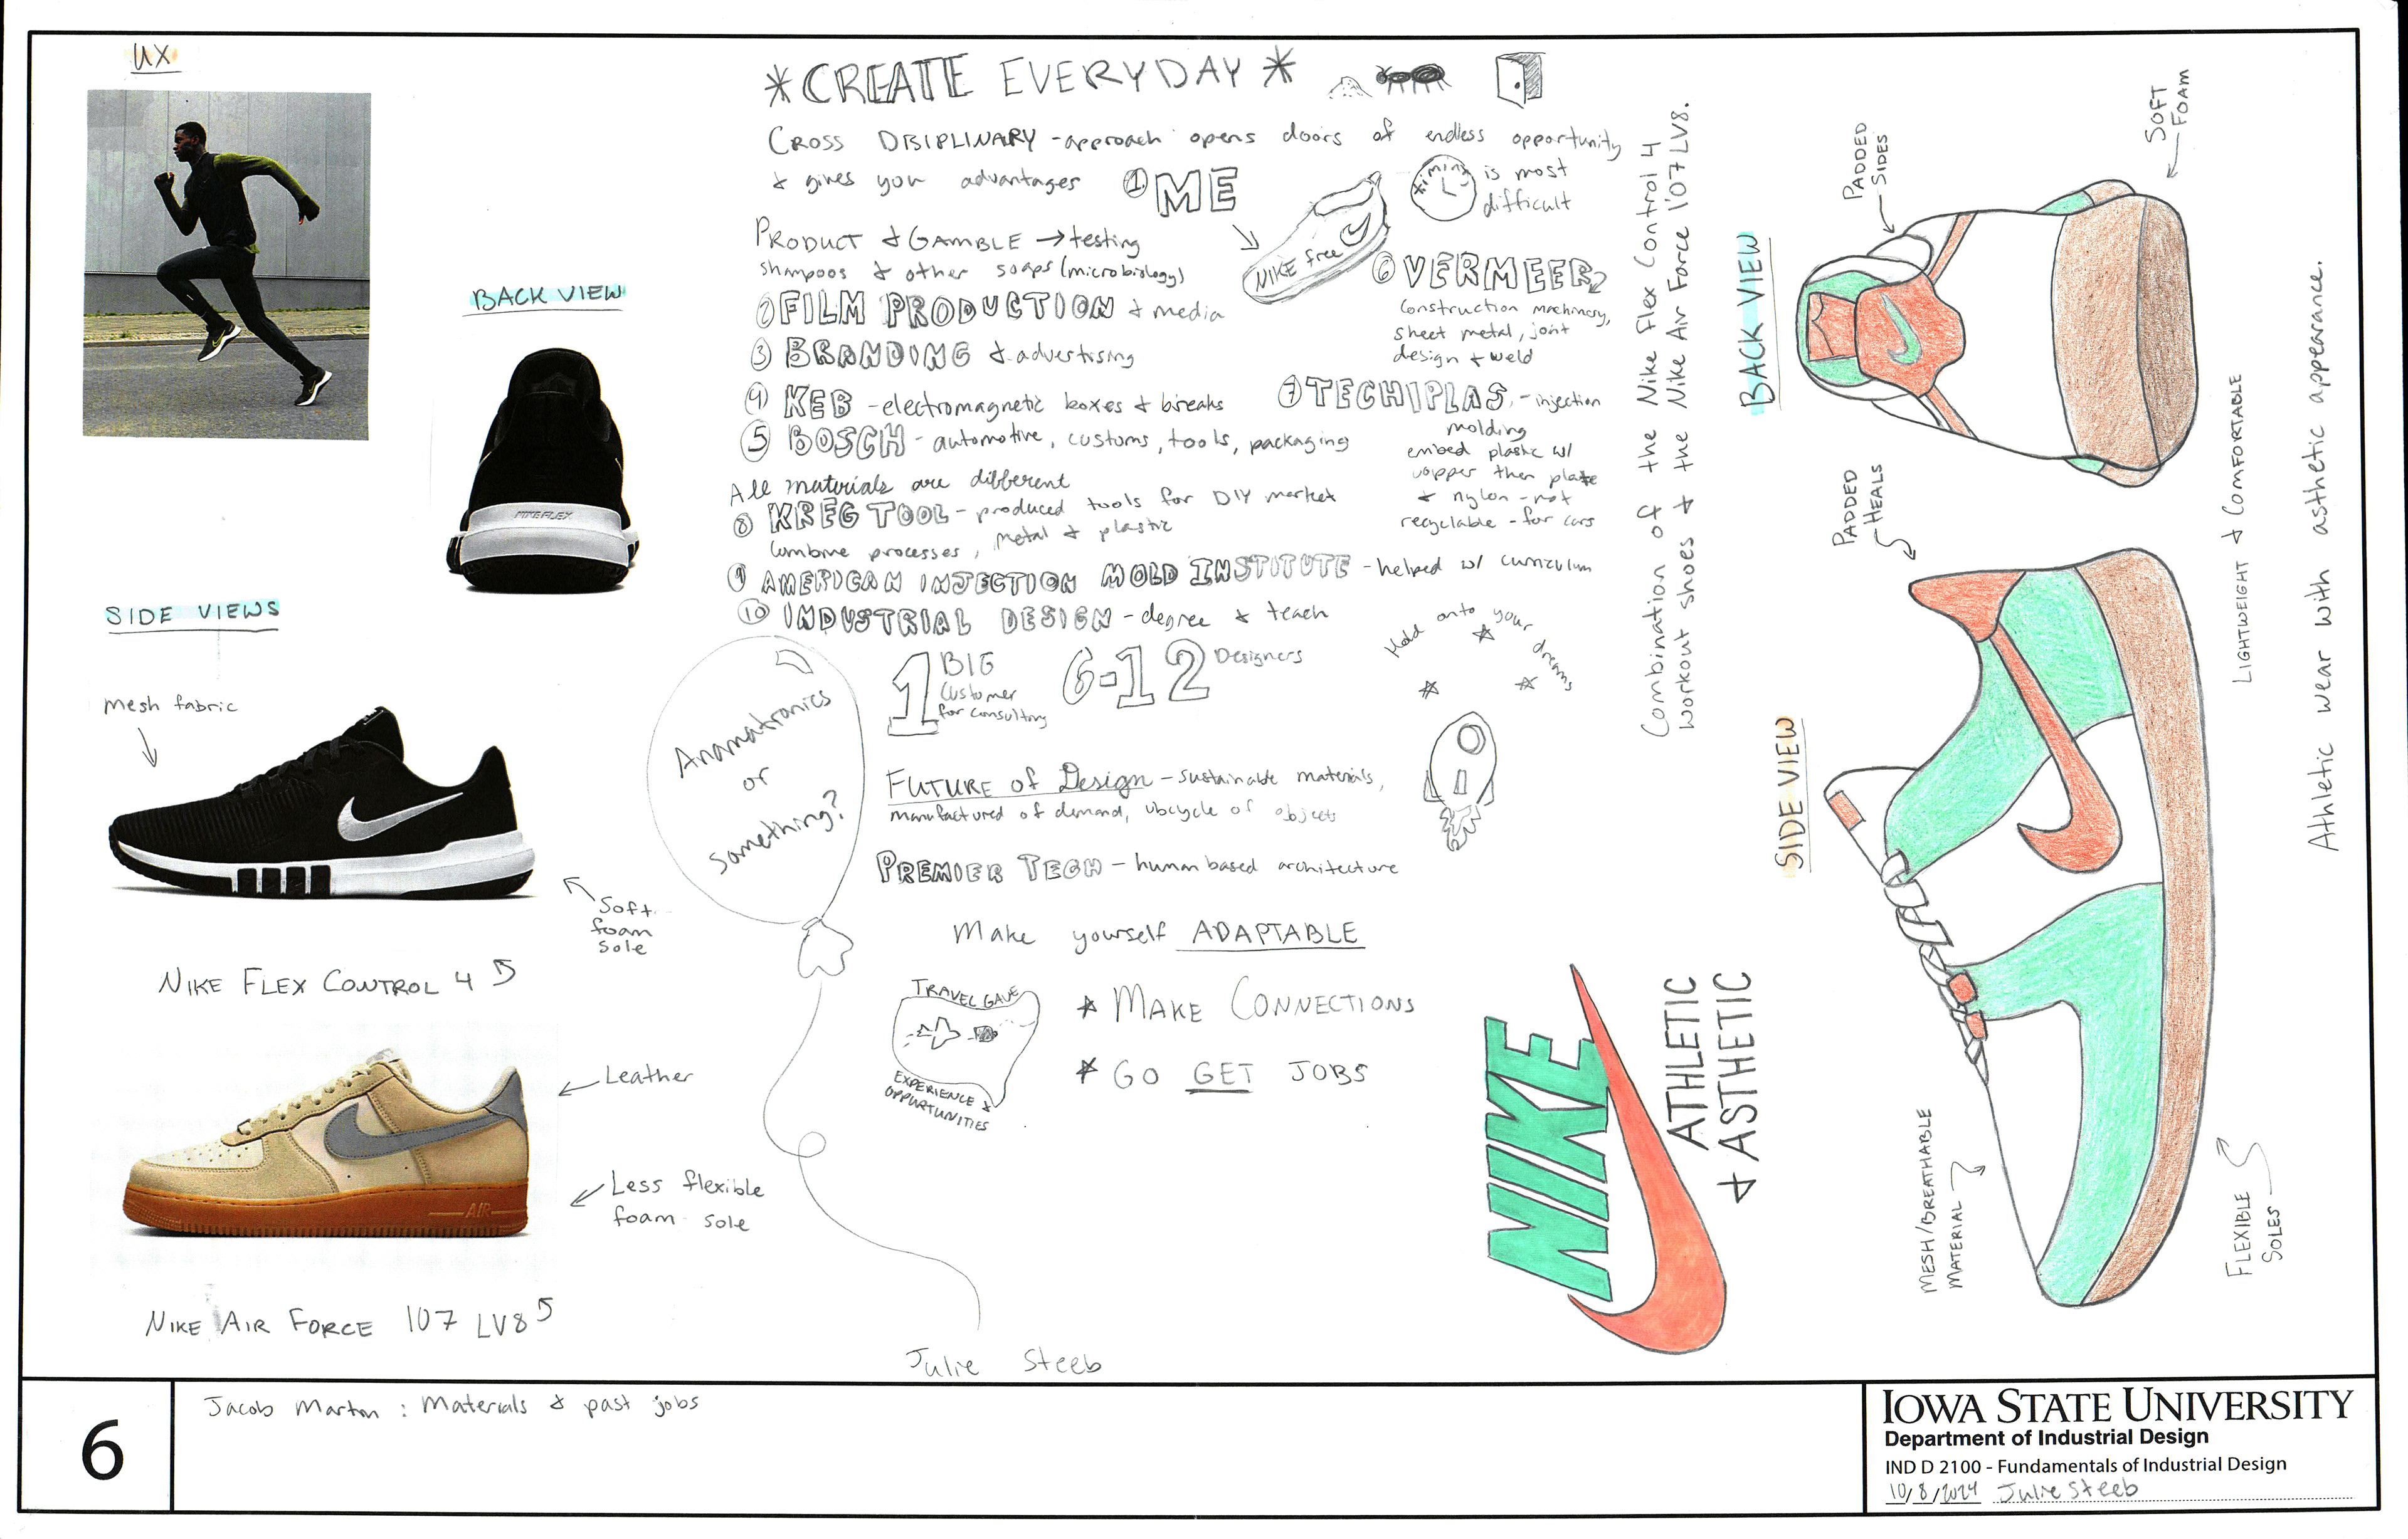 UX
BACK VIEW
NIKE FLEX
SIDE VIEWS
mesh fabric
Soft
foam
sole
NIKE FLEX CONTROL 4
Leather
AIR
Less flexible
foam sole
NIKE AIR FORCE 107 LV8
*CREATE EVERYDAY*
CROSS DISIPLINARY - approach opens doors of endless opportunity
& gives you advantages
① ME
timing is most
difficult
NIKE free
PRODUCT & GAMBLE → testing
shampoos & other soaps (microbiology)
② FILM PRODUCTION & media
③ BRANDING & advertising
④ KEB - electromagnetic boxes & breaks
⑤ BOSCH - automotive, customs, tools, packaging
⑥ VERMEER
construction machinery,
sheet metal, joint
design & weld
⑦ TECHIPLAS - injection
molding
embed plastic w/
copper then plate
& nylon - not
recyclable - for cars
All materials are different
⑧ KREG TOOL - produced tools for DIY market
combine processes, metal & plastic
⑨ AMERICAN INJECTION MOLD INSTITUTE - helped w/ curriculum
⑩ INDUSTRIAL DESIGN - degree & teach
1 BIG
Customer
for consulting
6-12 Designers
Hold onto your dreams
Anamatronics
or
something?
FUTURE of Design - sustainable materials,
manufactured of demand, ubcycle of objects
PREMIER TECH - human based architecture
Make yourself ADAPTABLE
TRAVEL GAVE
EXPERIENCE &
OPPURTUNITIES
* MAKE CONNECTIONS
* GO GET JOBS
Julie Steeb
Combination of the Nike Flex Control 4
workout shoes & the Nike Air Force 1'07 LV8.
NIKE
ATHLETIC
& ASTHETIC
BACK VIEW
PADDED
SIDES
SOFT
FOAM
SIDE VIEW
PADDED
HEALS
MESH/BREATHABLE
MATERIAL
FLEXIBLE
SOLES
LIGHTWEIGHT & COMFORTABLE
Athletic wear with asthetic appearance.
6
Jacob Marton: Materials & past jobs
IOWA STATE UNIVERSITY
Department of Industrial Design
IND D 2100 - Fundamentals of Industrial Design
10/8/2024 Julie Steeb